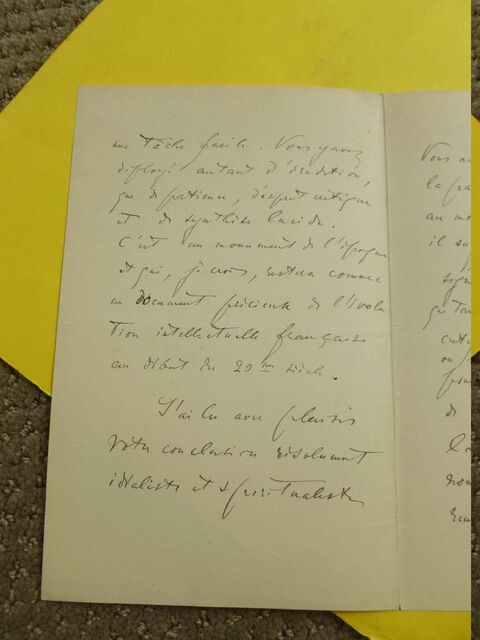 une tâche facile. Vous y avez
déployé autant d'érudition,
que de patience, d'esprit critique
et de synthèse lucide.
C'est un monument de l'époque
et qui, je crois, restera comme
un document précieux de l'évolu
tion intellectuelle française
au début du 20me siècle.
J'ai lu avec plaisir
votre conclusion résolument
idéaliste et spiritualiste
Vous
la
au
il
de